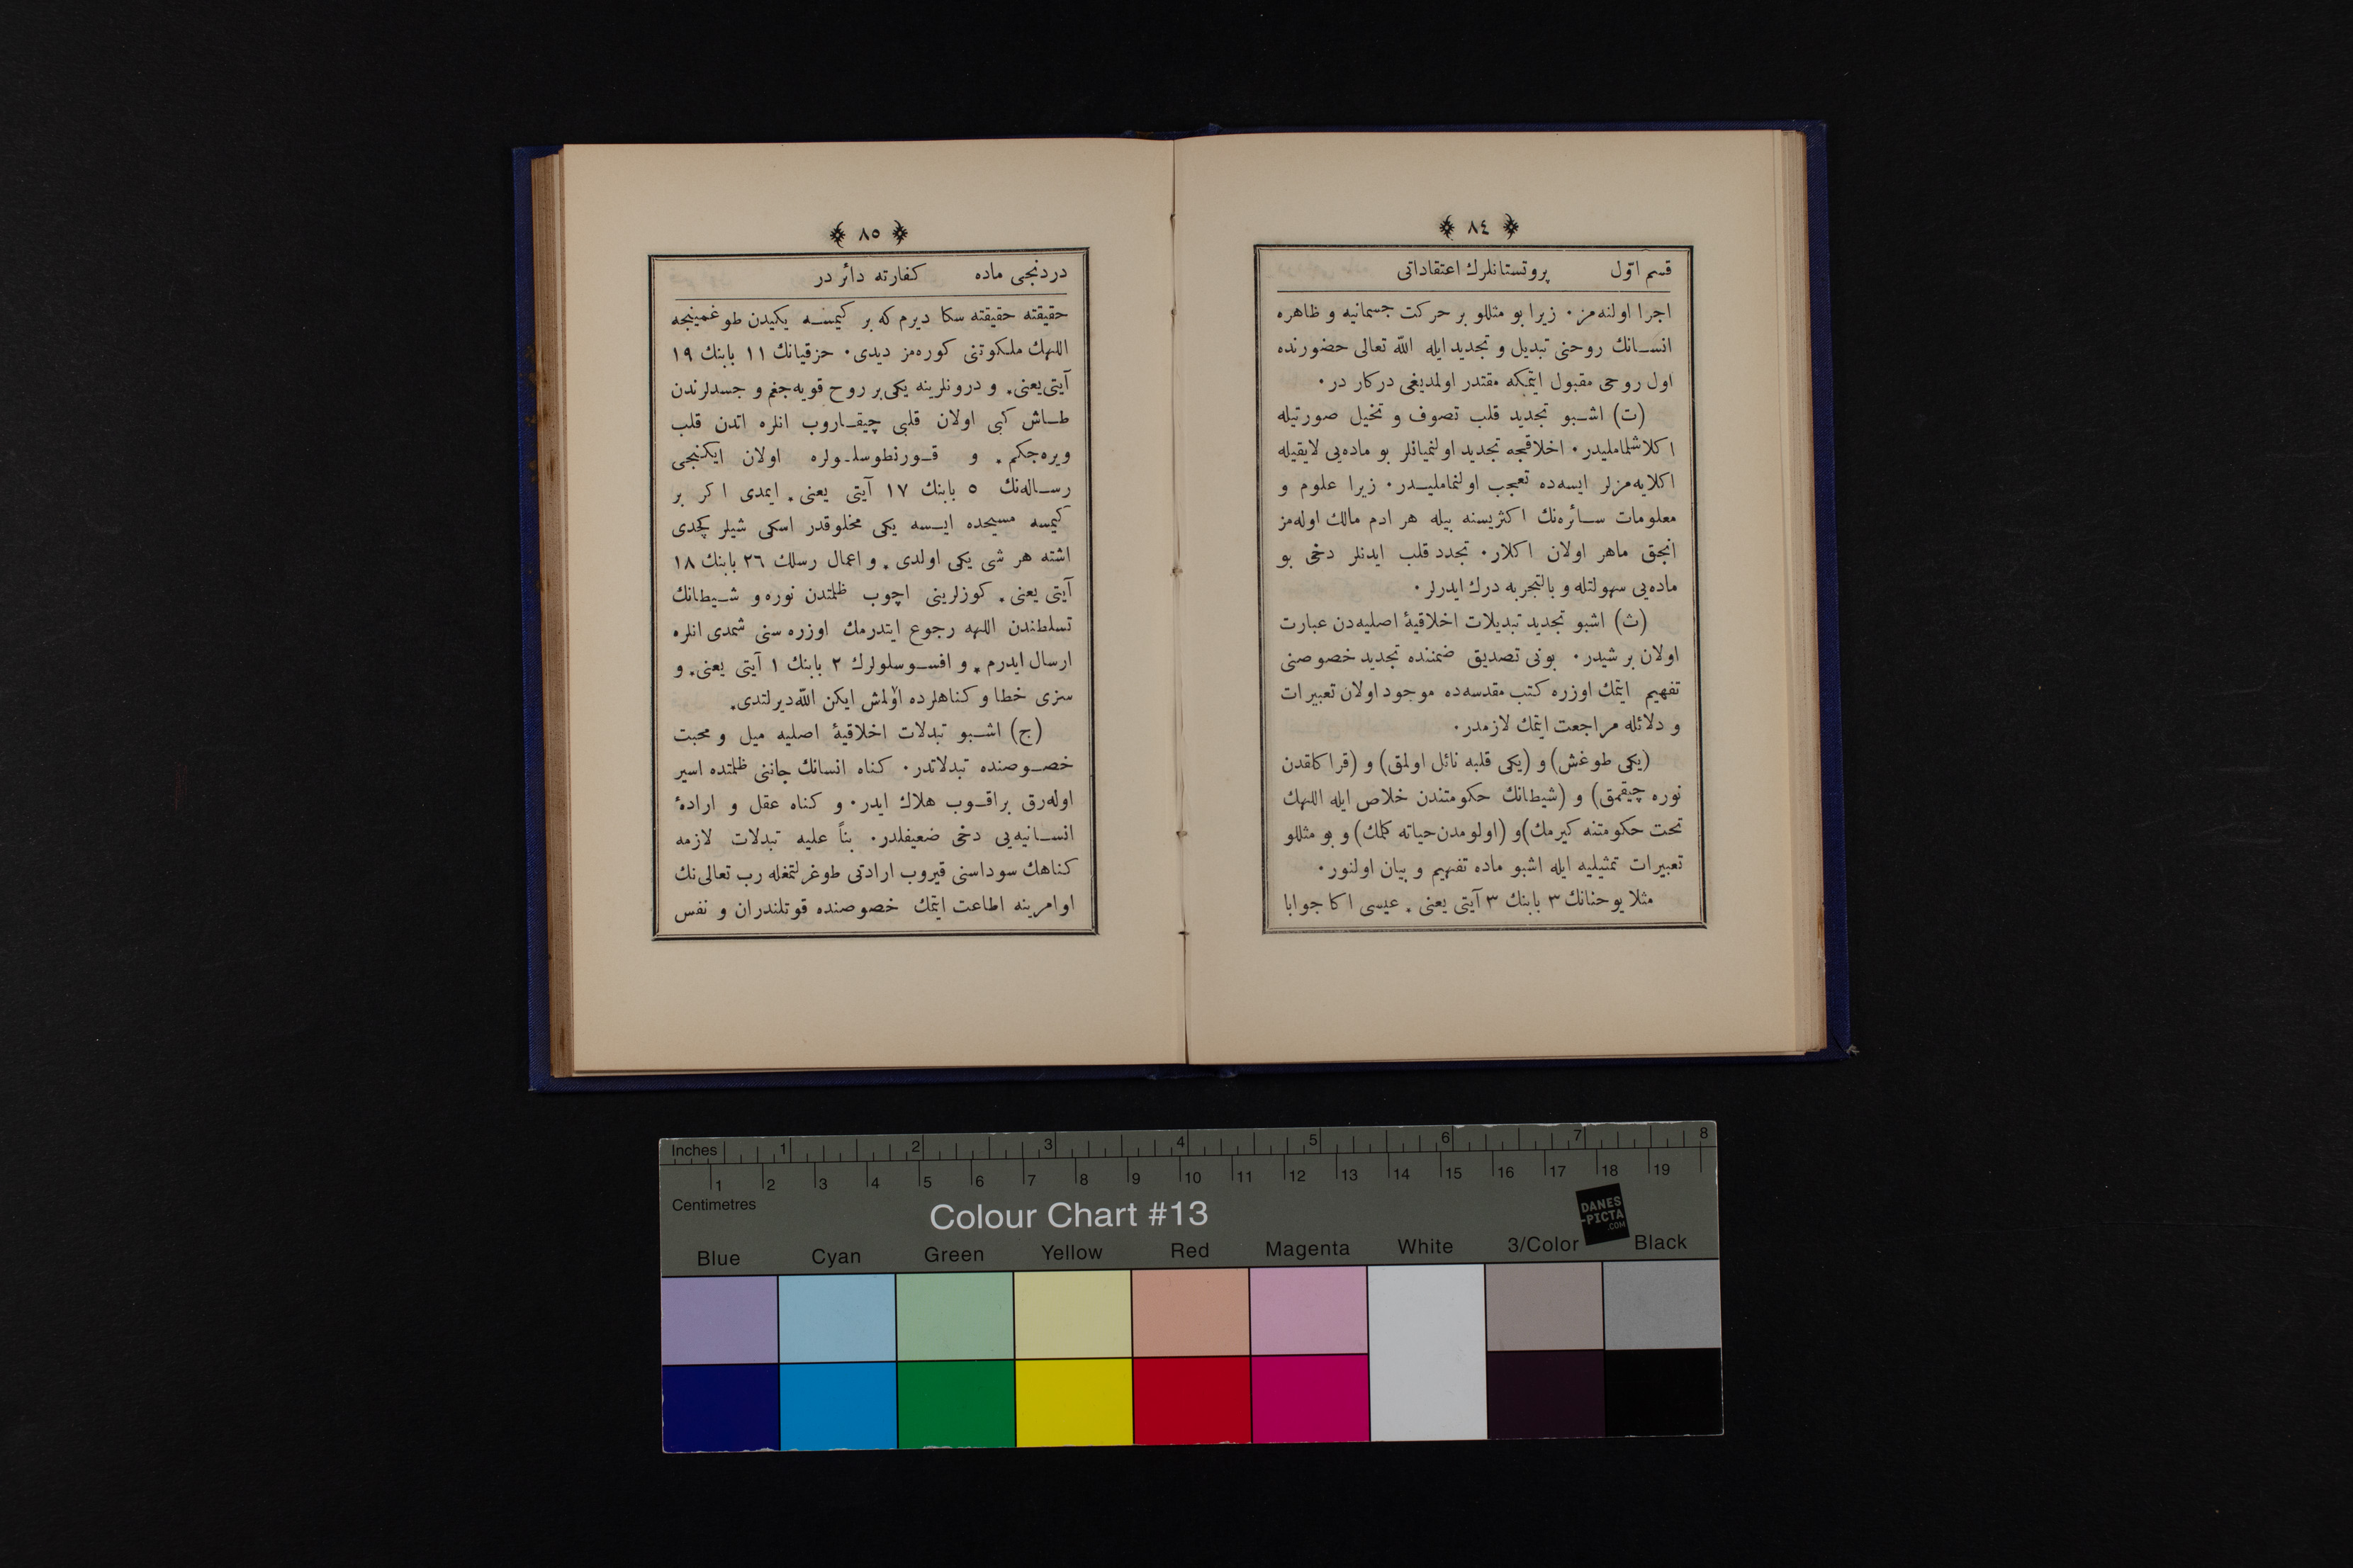 ٨٤
قسم اوّل پروتستانلرك اعتقاداتی
اجرا اولنه‌مز٠ زیرا بو مثللو بر حركت جسمانیه و ظاهره
انسانك روحنی تبدیل و تجدید ایله الله تعالی حضورنده
اول روحی مقبول ایتمكه مقتدر اولمدیغی دركار در٠
(ت) اشبو تجدید قلب تصوف و تخیل صورتیله
اكلاشلماملیدر٠ اخلاقجه تجدید اولنمیانلر بو ماده‌یی لایقیله
اكلایه‌مزلر ایسه‌ده تعجب اولنماملیدر٠ زیرا علوم و
معلومات سائره‌نك اكثریسنه بیله هر ادم مالك اوله‌مز
انجق ماهر اولان اكلار٠ تجدد قلب ایدنلر دخی بو
ماده‌یی سهولتله و بالتجربه درك ایدرلر٠
(ث) اشبو تجدید تبدیلات اخلاقیۀ اصلیه‌دن عبارت
اولان بر شیدر٠ بونی تصدیق ضمننده تجدید خصوصنی
تفهیم ایتمك اوزره كتب مقدسه‌ده موجود اولان تعبیرات
و دلائله مراجعت ایتمك لازمدر٠
(یكی طوغش) و (یكی قلبه نائل اولمق) و (قراكلقدن
نوره چیقمق) و (شیطانك حكومتندن خلاص ایله اللهك
تحت حكومتنه كیرمك) و (اولومدن حیاته كلمك) و بو مثللو
تعبیرات تمثیلیه ایله اشبو ماده تفهیم و بیان اولنور٠
مثلا یوحنانك ٣ بابنك ٣ آیتی یعنی ٭ عیسی اكا جوابا
٨٥
دردنجی ماده كفارته دائر در
حقیقته حقیقته سكا دیرم كه بر كیمسه یكیدن طوغمینجه
اللهك ملكوتنی كوره‌مز دیدی٠ حزقیانك ١١ بابنك ١٩
آیتی یعنی٭ و درونلرینه یكی بر روح قویه‌جغم و جسدلرندن
طاش كبی اولان قلبی چیقاروب انلره اتدن قلب
ویره‌جكم٭ و قورنطوسلولره اولان ایكنجی
رساله‌نك ٥ بابنك ١٧ آیتی یعنی٭ ایمدی اكر بر
كیمسه مسیحده ایسه یكی مخلوقدر اسكی شیلر كچدی
اشته هر شی یكی اولدی٭ و اعمال رسلك ٢٦ بابنك ١٨
آیتی یعنی٭ كوزلرینی اچوب ظلمتدن نوره و شیطانك
تسلطندن اللهه رجوع ایتدرمك اوزره سنی شمدی انلره
ارسال ایدرم٭ و افسوسلولرك ٢ بابنك ١ آیتی یعنی٭ و
سزی خطا و كناهلرده اولمش ایكن الله دیرلتدی٭
(ج) اشبو تبدلات اخلاقیۀ اصلیه میل و محبت
خصوصنده تبدلاتدر٠ كناه انسانك جاننی ظلمتده اسیر
اوله‌رق براقوب هلاك ایدر٠ و كناه عقل و ارادۀ
انسانیه‌یی دخی ضعیفلدر٠ بنأً علیه تبدلات لازمه
كناهك سوداسنی قیروب ارادتی طوغرلتمغله رب تعالی‌نك
اوامرینه اطاعت ایتمك خصوصنده قوتلندران و نفس
Inches 1 2 3 4 5 6 7 8
1 2 3 4 5 6 7 8 9 10 11 12 13 14 15 16 17 18 19
Centimetres
Colour Chart #13
DANES
-PICTA
.COM
Blue Cyan Green Yellow Red Magenta White 3/Color Black